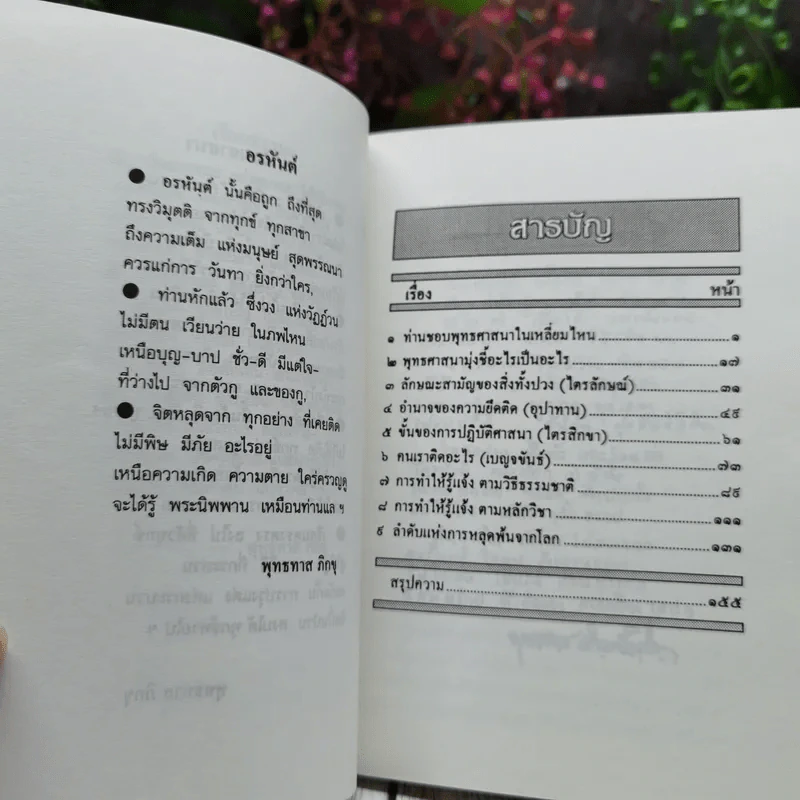 อรหันต์
● อรหันต์ นั้นคือถูก ถึงที่สุด
ทรงวิมุตติ จากทุกข์ ทุกสาขา
ถึงความเต็ม แห่งมนุษย์ สุดพรรณนา
ควรแก่การ วันทา ยิ่งกว่าใคร,
● ท่านหักแล้ว ซึ่งวง แห่งวัฏฏ์วน
ไม่มีตน เวียนว่าย ในภพไหน
เหนือบุญ-บาป ชั่ว-ดี มีแต่ใจ-
ที่ว่างไป จากตัวกู และของกู,
● จิตหลุดจาก ทุกอย่าง ที่เคยติด
ไม่มีพิษ มีภัย อะไรอยู่
เหนือความเกิด ความตาย ใคร่ครวญดู
จะได้รู้ พระนิพพาน เหมือนท่านแล ฯ
พุทธทาส ภิกขุ
สารบัญ
เรื่อง หน้า
๑ ท่านชอบพุทธศาสนาในเหลี่ยมไหน ๑
๒ พุทธศาสนามุ่งชี้อะไรเป็นอะไร ๑๗
๓ ลักษณะสามัญของสิ่งทั้งปวง (ไตรลักษณ์) ๓๑
๔ อำนาจของความยึดติด (อุปาทาน) ๔๙
๕ ขั้นของการปฏิบัติศาสนา (ไตรสิกขา) ๖๑
๖ คนเราติดอะไร (เบญจขันธ์) ๗๓
๗ การทำให้รู้แจ้ง ตามวิธีธรรมชาติ ๘๙
๘ การทำให้รู้แจ้ง ตามหลักวิชา ๑๑๑
๙ ลำดับแห่งการหลุดพ้นจากโลก ๑๓๑
สรุปความ ๑๕๕